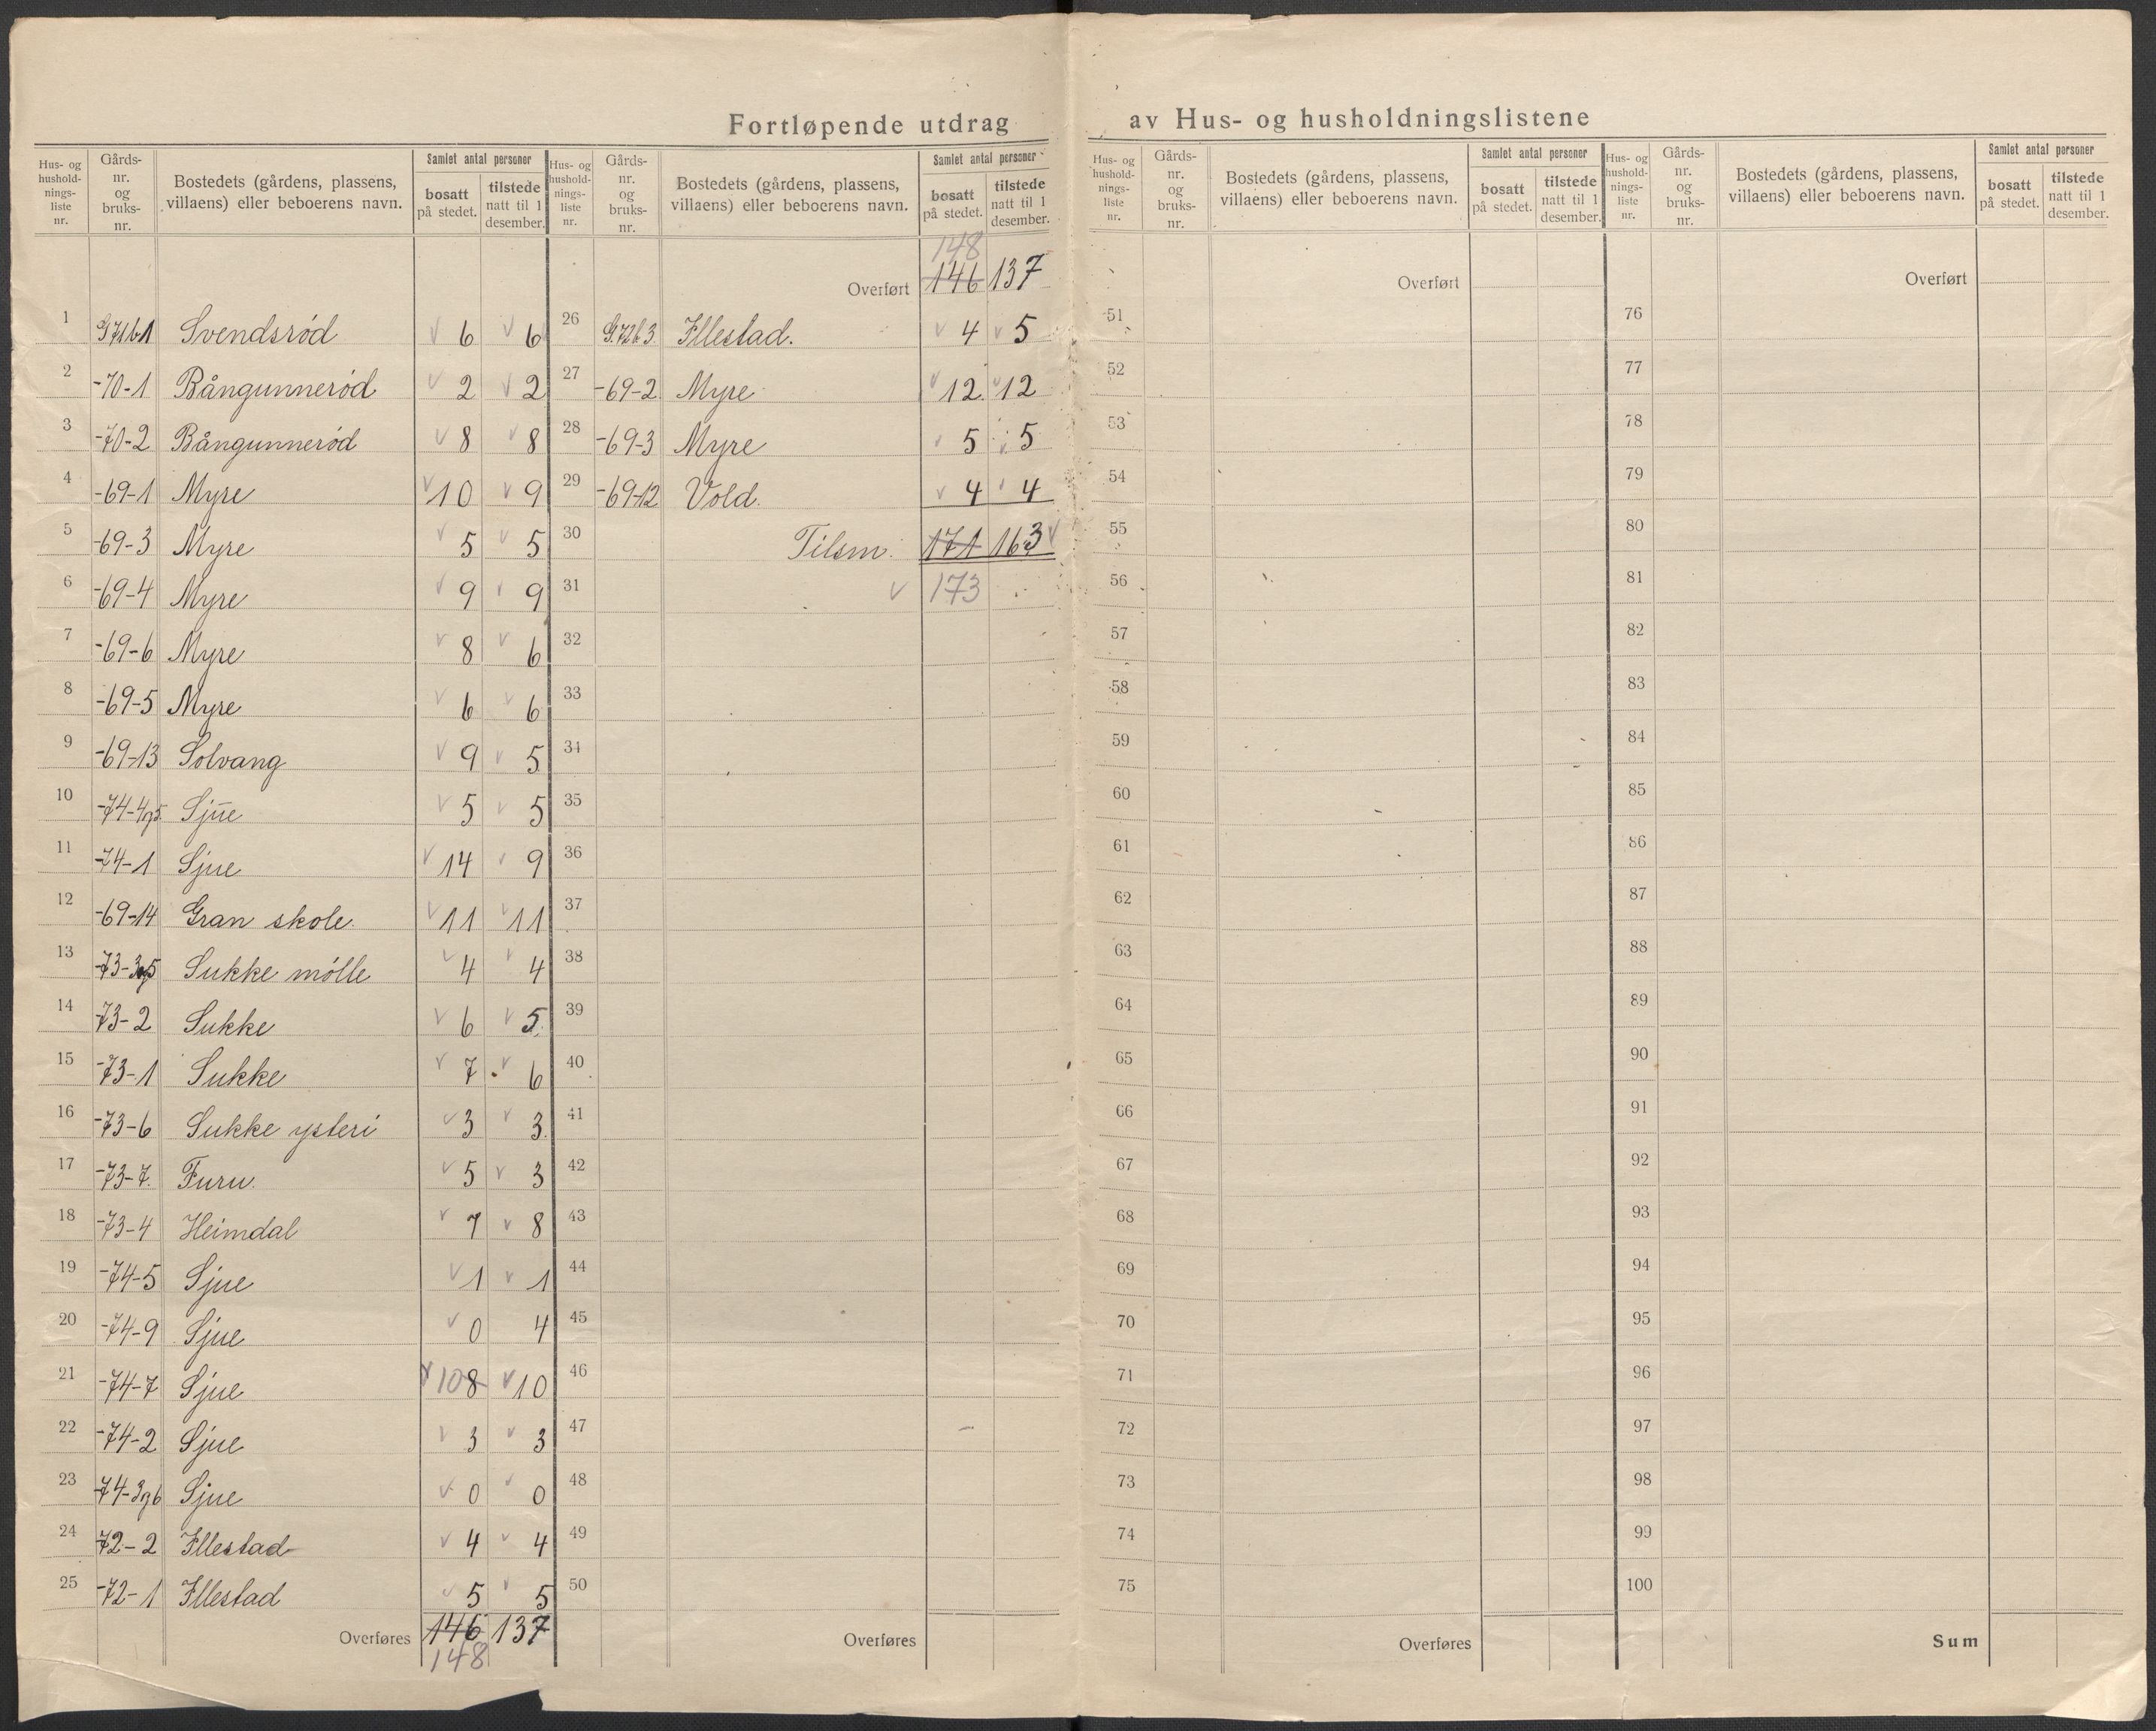 Fortløpende utdrag av Hus- og husholdningslistene
Hus- og husholdnings-liste nr. | Gårds-nr. og bruks-nr. | Bostedets (gårdens, plassens, villaens) eller beboerens navn. | Samlet antal personer | bosatt på stedet. | tilstede natt til 1 desember.
1 G71b1 Svendsrød 6 6
2 -70-1 Bångunnerød 2 2
3 -70-2 Bångunnerød 8 8
4 -69-1 Myre 10 9
5 -69-3 Myre 5 5
6 -69-4 Myre 9 9
7 -69-6 Myre 8 6
8 -69-5 Myre 6 6
9 -69-13 Solvang 9 5
10 -74-4og5 Sjue 5 5
11 -74-1 Sjue 14 9
12 -69-14 Gran skole. 11 11
13 -73-3og5 Sukke mølle 4 4
14 -73-2 Sukke 6 5
15 -73-1 Sukke 7 6
16 -73-6 Sukke ysteri 3 3
17 -73-7 Furu. 5 3
18 -73-4 Heimdal 7 8
19 -74-5 Sjue 1 1
20 -74-9 Sjue 0 4
21 -74-7 Sjue 10 8 10
22 -74-2 Sjue 3 3
23 -74-3og6 Sjue 0 0
24 -72-2 Illestad 4 4
25 -72-1 Illestad 5 5
Overføres 146 137
148
Hus- og husholdnings-liste nr. | Gårds-nr. og bruks-nr. | Bostedets (gårdens, plassens, villaens) eller beboerens navn. | Samlet antal personer | bosatt på stedet. | tilstede natt til 1 desember.
148
Overført 146 137
26 G.72b3. Illestad. 4 5
27 -69-2 Myre 12 12
28 -69-3 Myre 5 5
29 -69-12 Vold. 4 4
30 Tilsm. 171 163
31 173
32
33
34
35
36
37
38
39
40
41
42
43
44
45
46
47
48
49
50
Overføres
Hus- og husholdnings-liste nr. | Gårds-nr. og bruks-nr. | Bostedets (gårdens, plassens, villaens) eller beboerens navn. | Samlet antal personer | bosatt på stedet. | tilstede natt til 1 desember.
Overført
51
52
53
54
55
56
57
58
59
60
61
62
63
64
65
66
67
68
69
70
71
72
73
74
75
Overføres
Hus- og husholdnings-liste nr. | Gårds-nr. og bruks-nr. | Bostedets (gårdens, plassens, villaens) eller beboerens navn. | Samlet antal personer | bosatt på stedet. | tilstede natt til 1 desember.
Overført
76
77
78
79
80
81
82
83
84
85
86
87
88
89
90
91
92
93
94
95
96
97
98
99
100
Sum